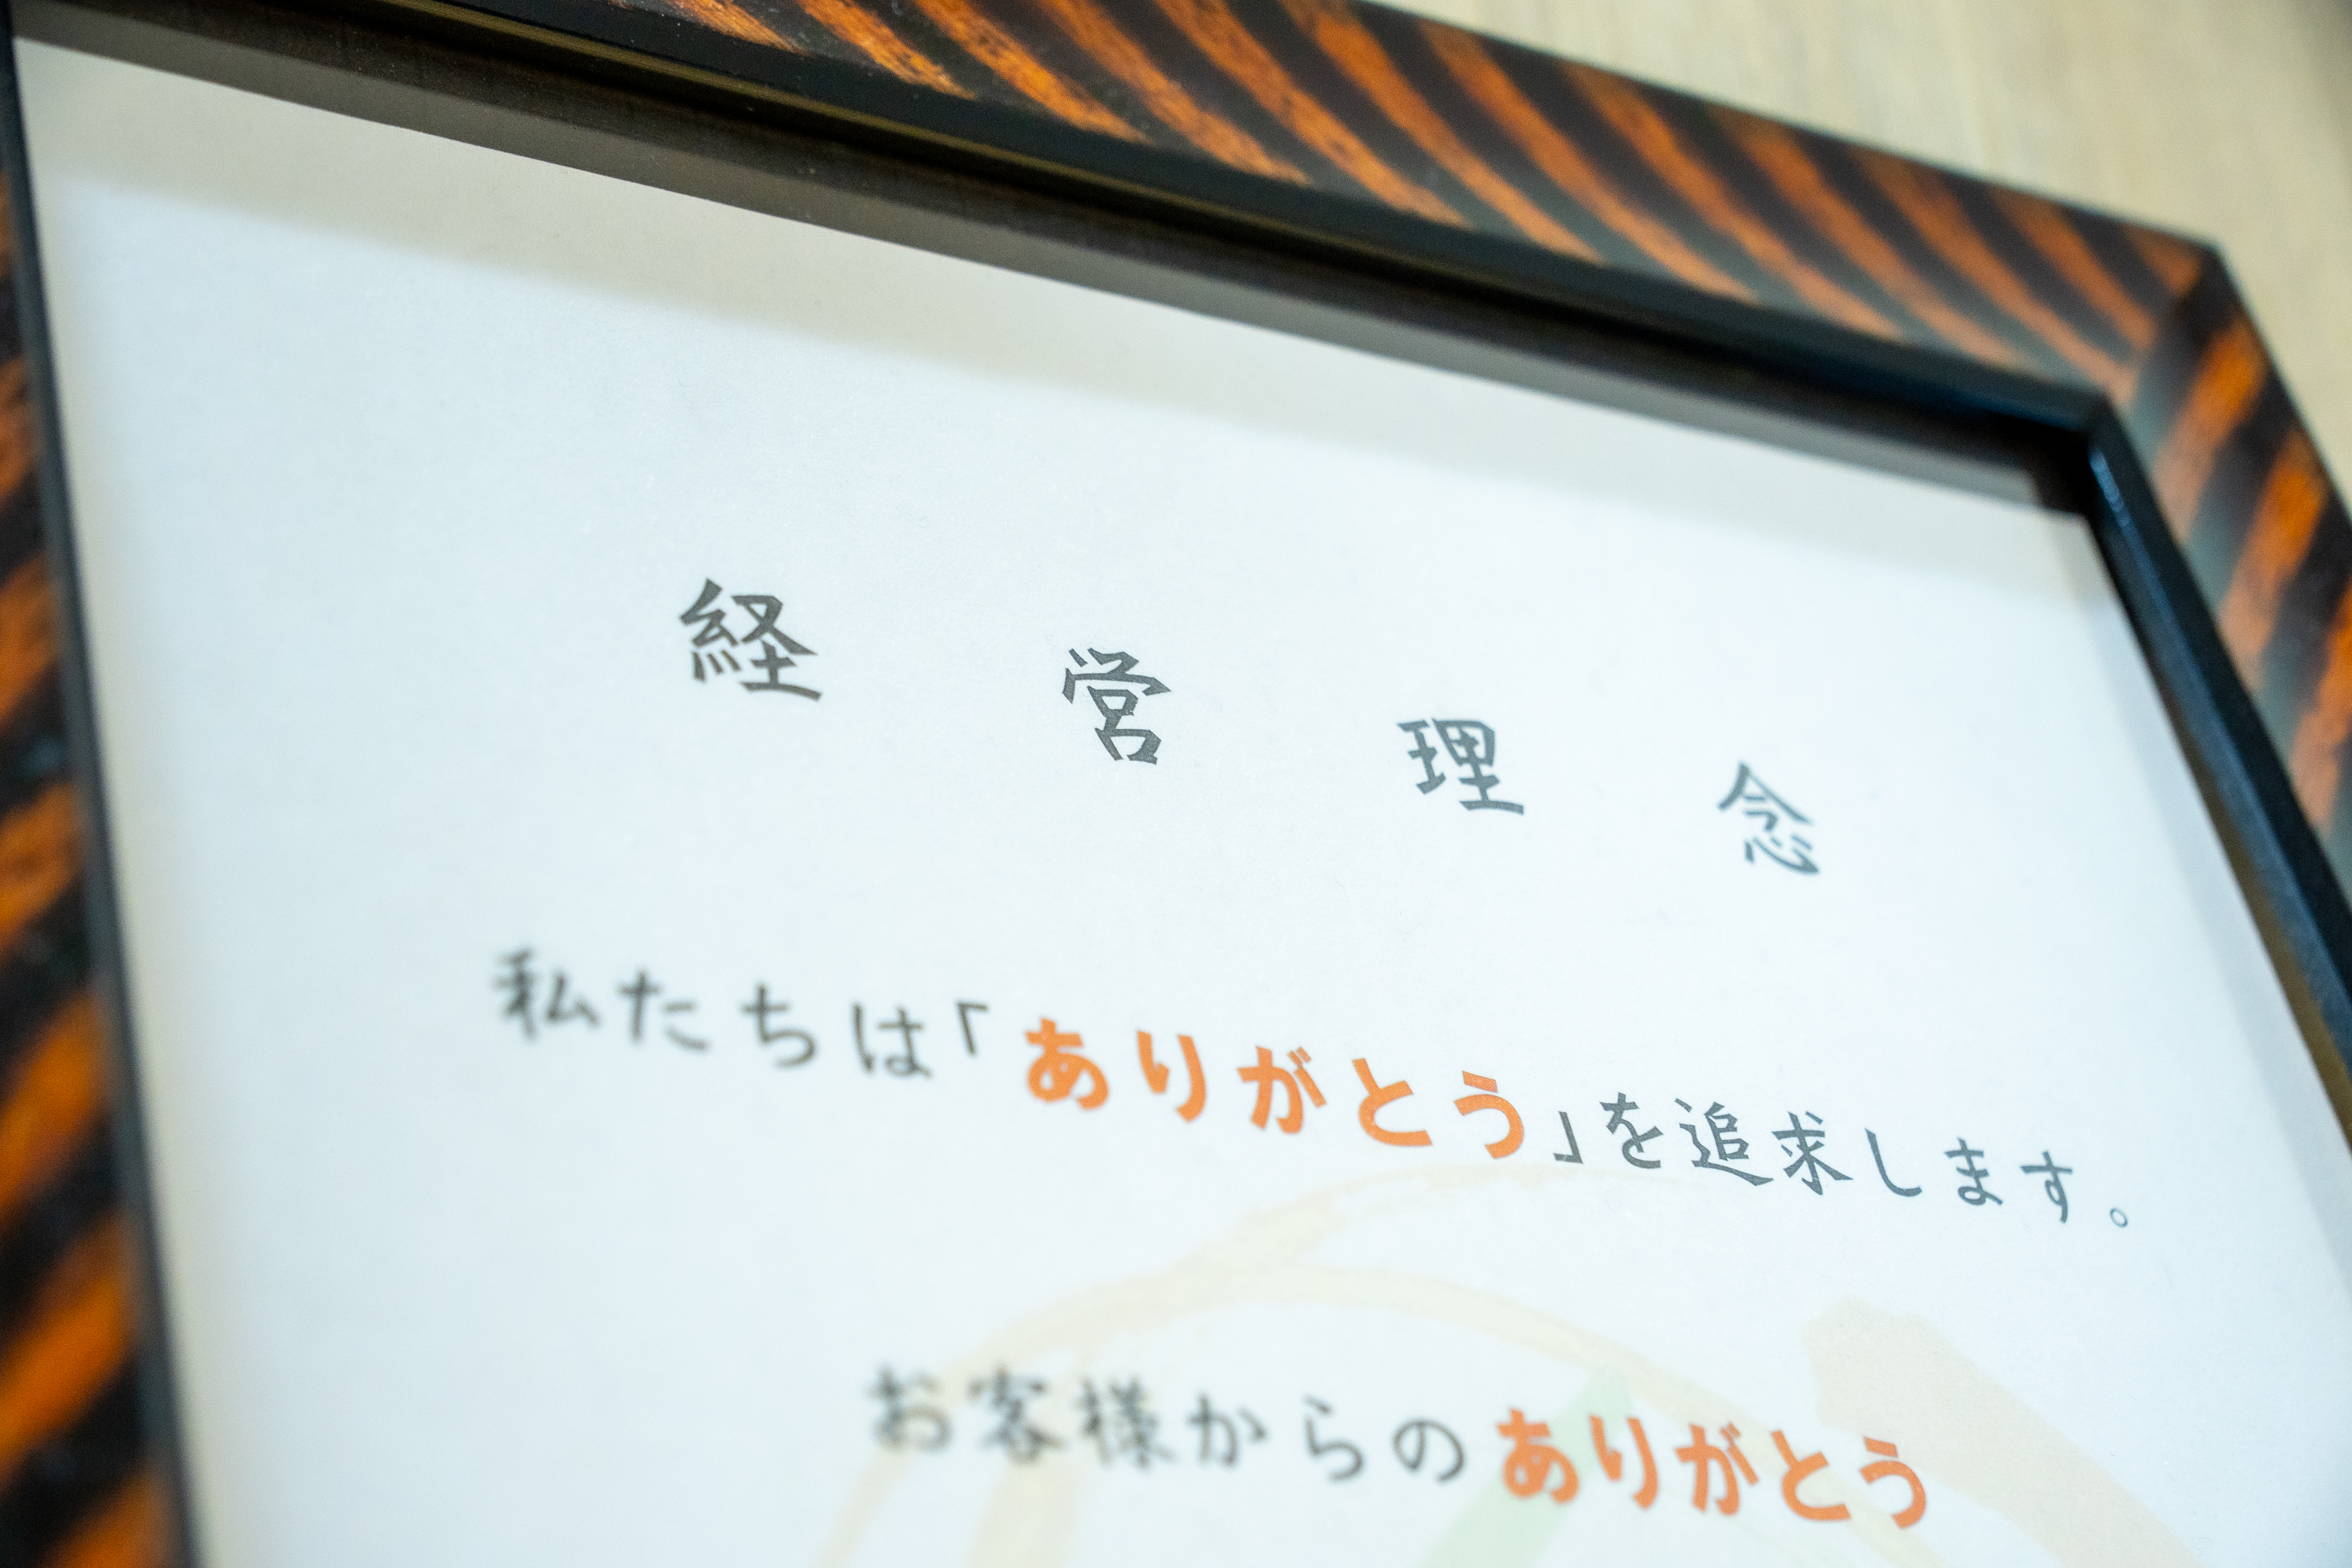 経営理念
私たちは「ありがとう」を追求します。
お客様からのありがとう